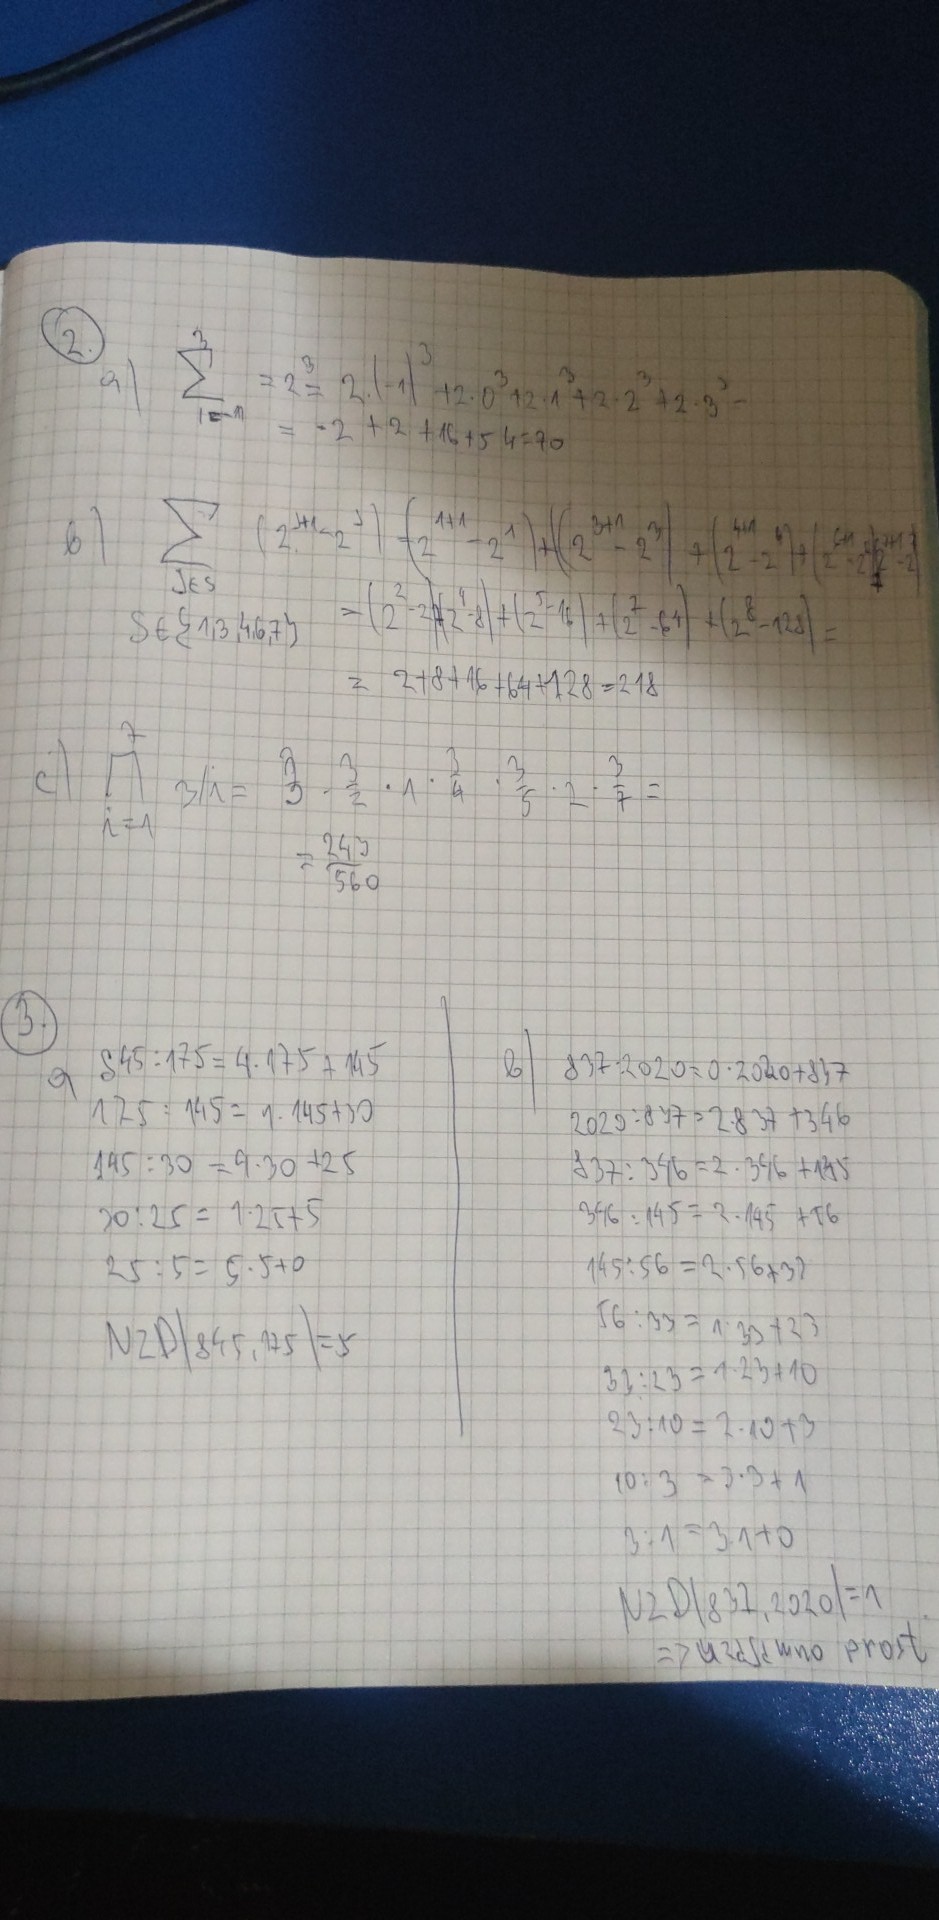 2.
a) 3 ∑ i=-1 = 2³ = 2·(-1)³ + 2·0³ + 2·1³ + 2·2³ + 2·3³ =
= -2 + 2 + 16 + 54 = 70
b) ∑ J∈S (2^(J+1) - 2^J) = (2^(1+1) - 2^1) + (2^(3+1) - 2^3) + (2^(4+1) - 2^4) + (2^(6+1) - 2^6) + (2^(7+1) - 2^7)
S∈{1,3,4,6,7} = (2² - 2) + (2⁴ - 8) + (2⁵ - 16) + (2⁷ - 64) + (2⁸ - 128) =
= 2 + 8 + 16 + 64 + 128 = 218
c) 7 ∏ i=1 3/i = 3 · 3/2 · 1 · 3/4 · 3/5 · 2 · 3/7 =
= 243/560
3.
a) 845 : 175 = 4·175 + 145
175 : 145 = 1·145 + 30
145 : 30 = 4·30 + 25
30 : 25 = 1·25 + 5
25 : 5 = 5·5 + 0
NZD(845, 175) = 5
b) 837 : 2020 = 0·2020 + 837
2020 : 837 = 2·837 + 346
837 : 346 = 2·346 + 145
346 : 145 = 2·145 + 56
145 : 56 = 2·56 + 33
56 : 33 = 1·33 + 23
33 : 23 = 1·23 + 10
23 : 10 = 2·10 + 3
10 : 3 = 3·3 + 1
3 : 1 = 3·1 + 0
NZD(837, 2020) = 1
=> uzajamno prost